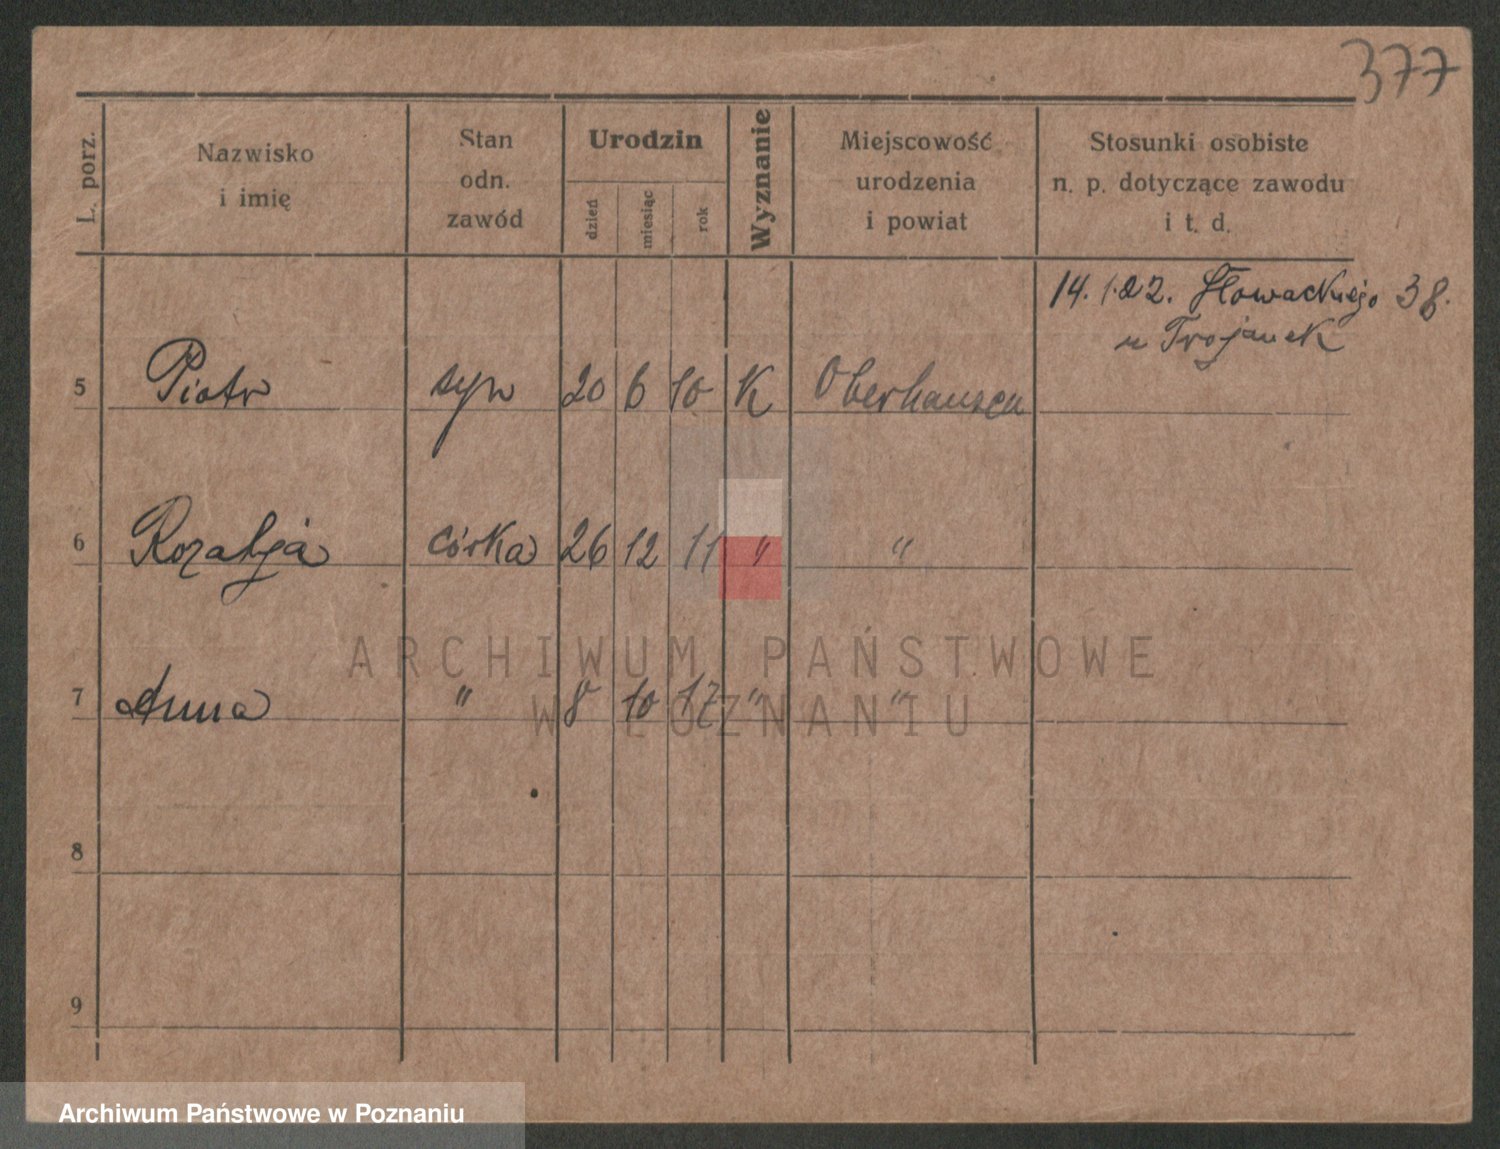 377
L. porz.
Nazwisko
i imię
Stan
odn.
zawód
Urodzin
dzień
miesiąc
rok
Wyznanie
Miejscowość
urodzenia
i powiat
Stosunki osobiste
n. p. dotyczące zawodu
i t. d.
14. 1. 22. Słowackiego 38.
u Trojanek
5 Piotr syn 20 6 10 K Oberhausen
6 Rozalja córka 26 12 11 " "
7 Anna " 8 10 17 " "
8
9
ARCHIWUM PAŃSTWOWE
W POZNANIU
Archiwum Państwowe w Poznaniu